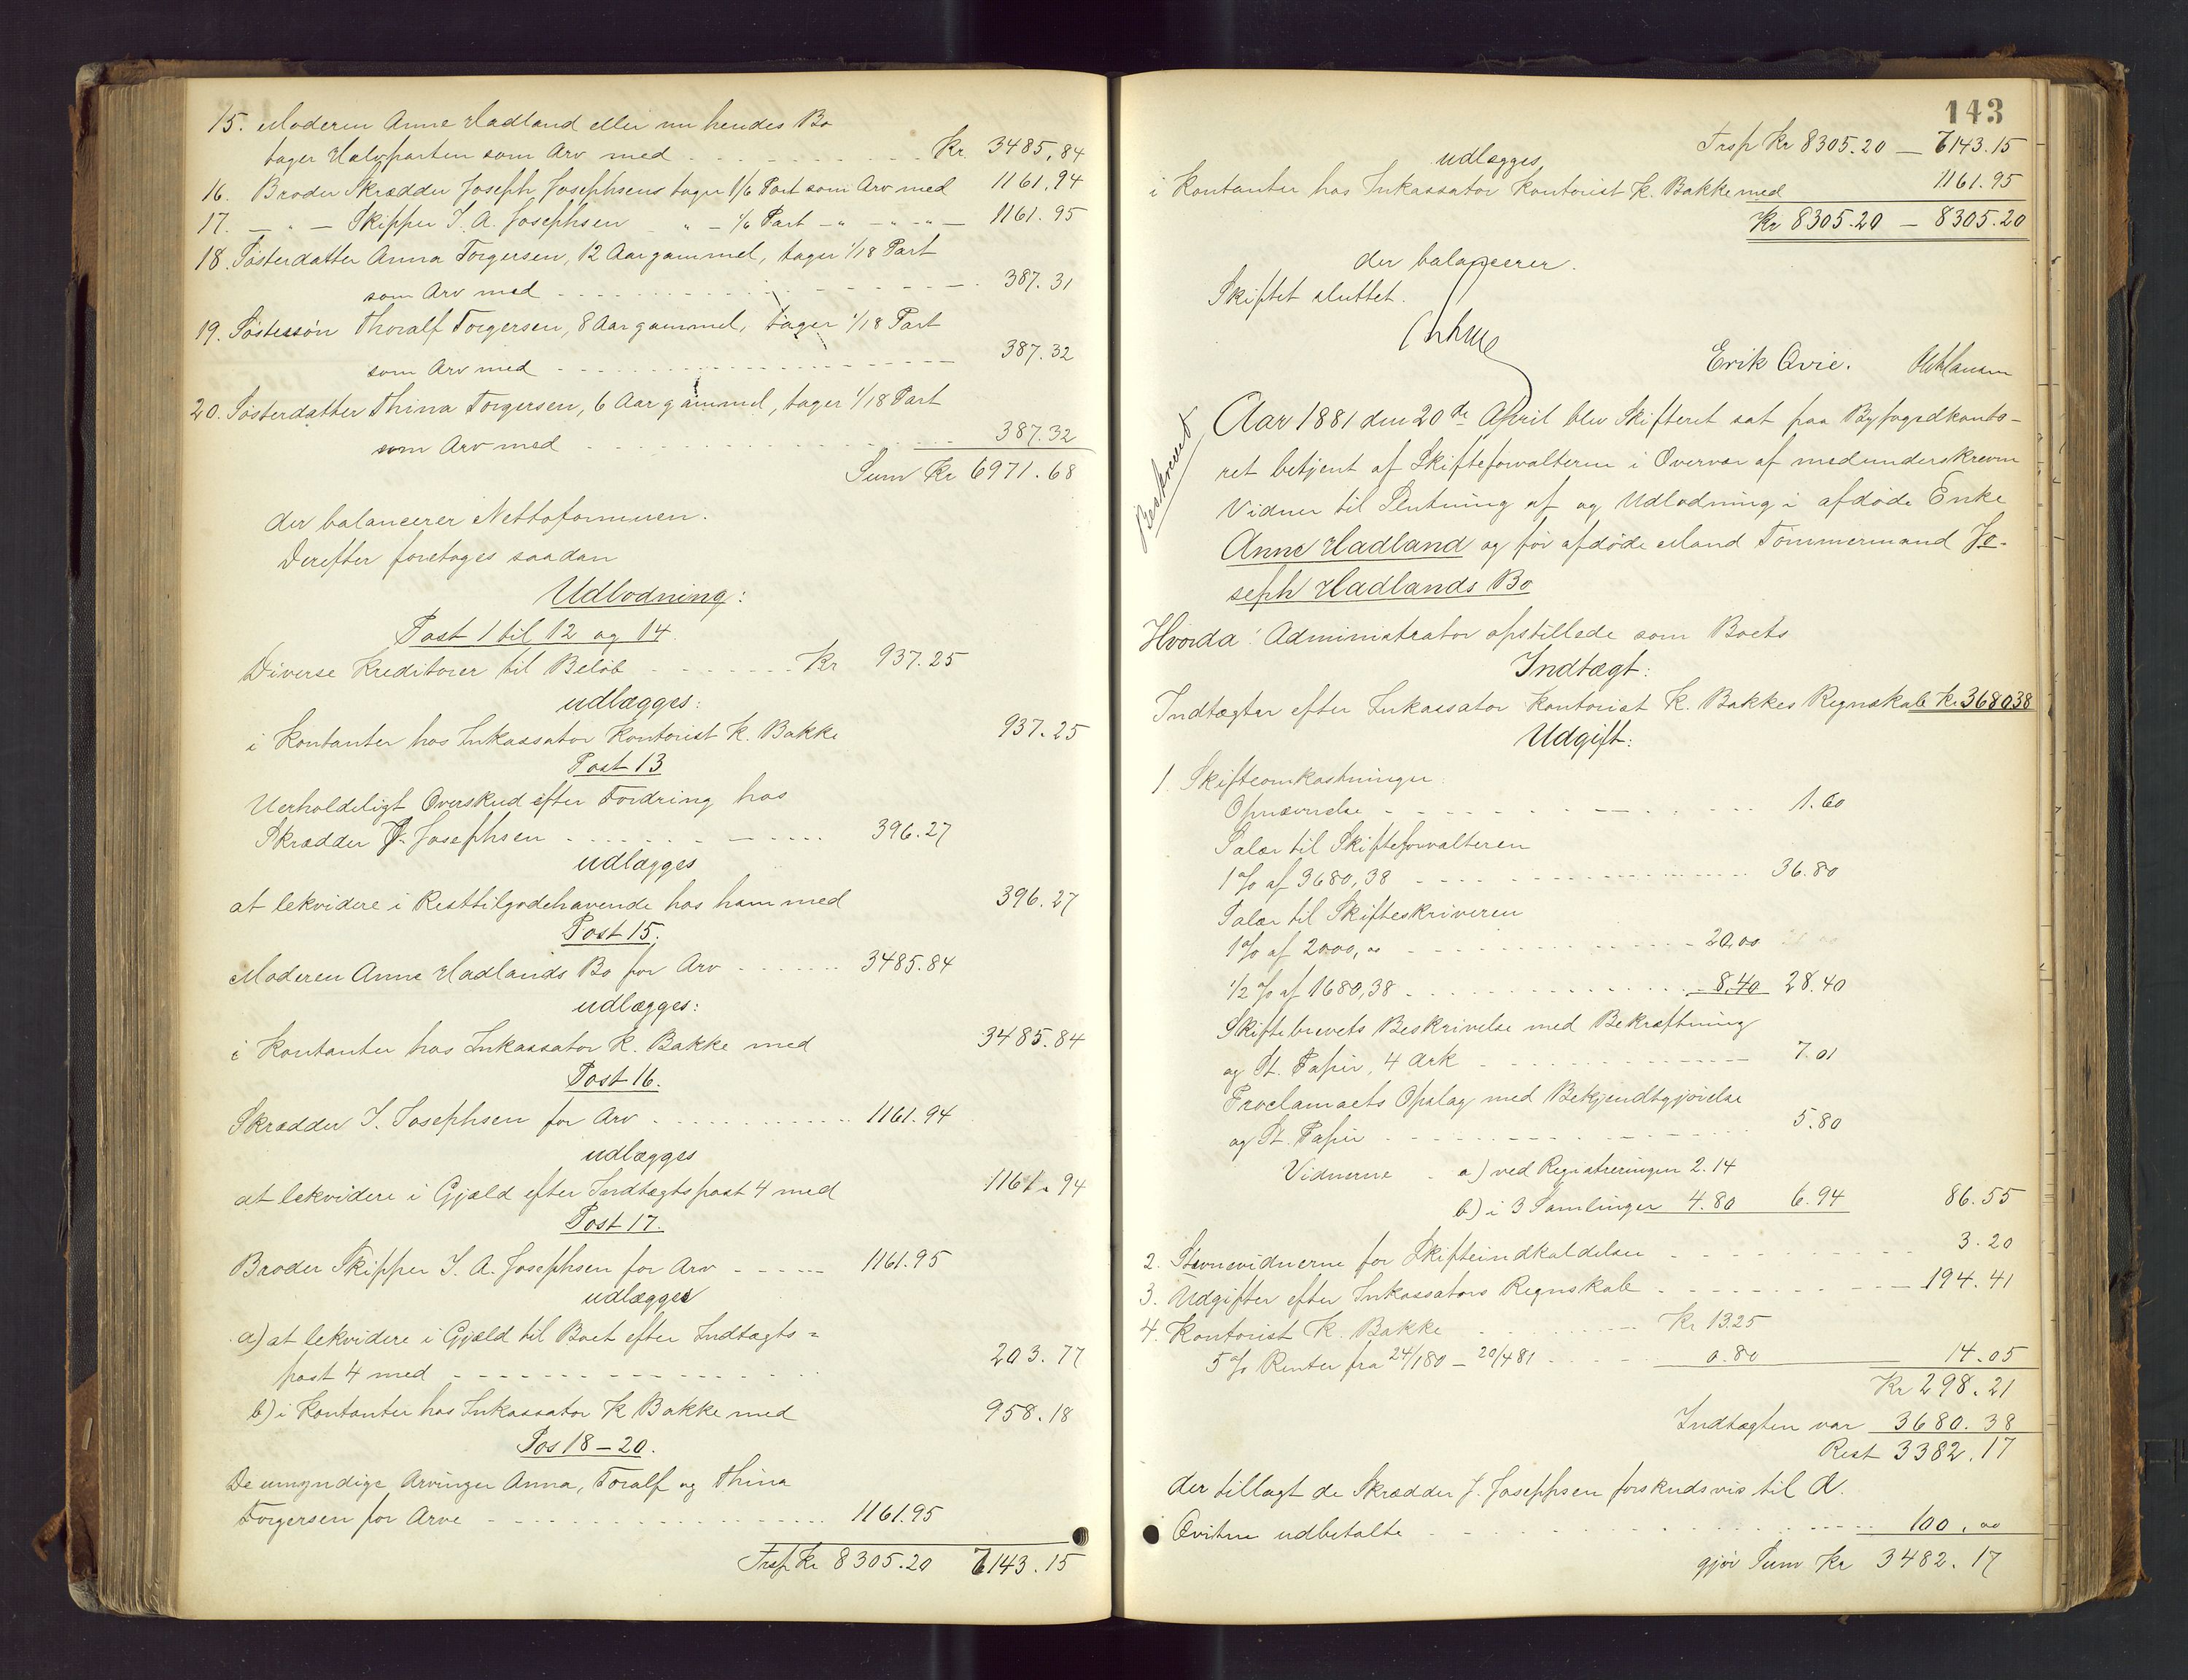 15. Moderen Anne Hadland eller nu hendes Bo
tager Halvparten som Arv med Kr. 3485,84
16. Broder Skrædder Joseph Josephsens tager 1/6 Part som Arv med 1161.94
17. — " — Skipper I. A. Josephsen " — 1/6 Part — " — " — " — 1161.95
18. Søsterdatter Anna Torgersen, 12 Aar gammel, tager 1/18 Part
som Arv med 387.31
19. Søstersøn Thoralf Torgersen, 8 Aar gammel, tager 1/18 Part
som Arv med 387.32
20. Søsterdatter Thina Torgersen, 6 Aar gammel, tager 1/18 Part
som Arv med 387.32
Sum Kr 6971.68
der balancerer Nettoformuen.
Derefter foretages saadan
Udlodning:
Post 1 til 12 og 14.
Diverse Kreditorer til Beløb Kr 937.25
udlægges:
i Kontanter hos Inkassator Kontorist K. Bakke 937.25
Post 13
Uerholdeligt Overskud efter Fordring hos
Skrædder J. Josephsen 396.27
udlægges
at lekvidere i Resttilgodehavende hos ham med 396.27
Post 15.
Moderen Anne Hadlands Bo for Arv 3485.84
udlægges:
i Kontanter hos Inkassator K. Bakke med 3485.84
Post 16.
Skrædder I. Josephsen for Arv 1161.94
udlægges
at lekvidere i Gjæld efter Indtægtspost 4 med 1161.94
Post 17.
Broder Skipper I. A. Josephsen for Arv 1161.95
udlægges
a) at lekvidere i Gjæld til Boet efter Indtægts=
post 4 med 203.77
b) i Kontanter hos Inkassator K Bakke med 958.18
Pos 18 – 20.
De umyndige Arvinger Anna, Toralf og Thina
Torgersen for Arve 1161.95
Trsp Kr 8305.20 7143.15
143
Trsp Kr 8305.20 — 7143.15
udlægges
i Kontanter hos Inkassator Kontorist K. Bakke med 1161.95
Kr 8305.20 — 8305.20
der balancerer.
Skiftet sluttet.
Erik Qvie.
Beskrevet
Aar 1881 den 20de April blev Skifteret sat paa Byfogedkonto-
ret betjent af Skifteforvalteren i Overvær af medunderskrevne
Vidner til Slutning af og Udlodning i afdøde Enke
Anne Hadland og før afdøde Mand Tømmermand Jo-
seph Hadlands Bo
Hvorda: Administrator opstillede som Boets
Indtægt:
Indtægter efter Inkassator Kontorist K. Bakkes Regnskab Kr 3680 38
Udgift:
1. Skifteomkostninger
Opnævnelse 1.60
Salær til Skifteforvalteren
1% af 3680,38 36.80
Salær til Skifteskriveren
1% af 2000,00 20,00
1/2 % af 1680,38 8.40 28.40
Skiftebrevets Beskrivelse med Bekræftning
og St. Papir, 4 Ark 7.01
Proclamaets Opslag med Bekjendtgjørelse
og St. Papir 5.80
Vidnerne a) ved Registreringen 2.14
b) i 3 Samlinger 4.80 6.94 86.55
2. Stevnevidnerne for Skifteindkaldelser 3.20
3. Udgifter efter Inkassators Regnskab 194.41
4. Kontorist K. Bakke Kr 13.25
5 % Renter fra 24/1 80 – 20/4 81 0.80 14.05
Kr 298.21
Indtægten var 3680.38
Rest 3382.17
der tillagt de Skrædder J. Josephsen forskudsvis til A.
Qvitne udbetalte 100,00
gjør Sum Kr 3482.17